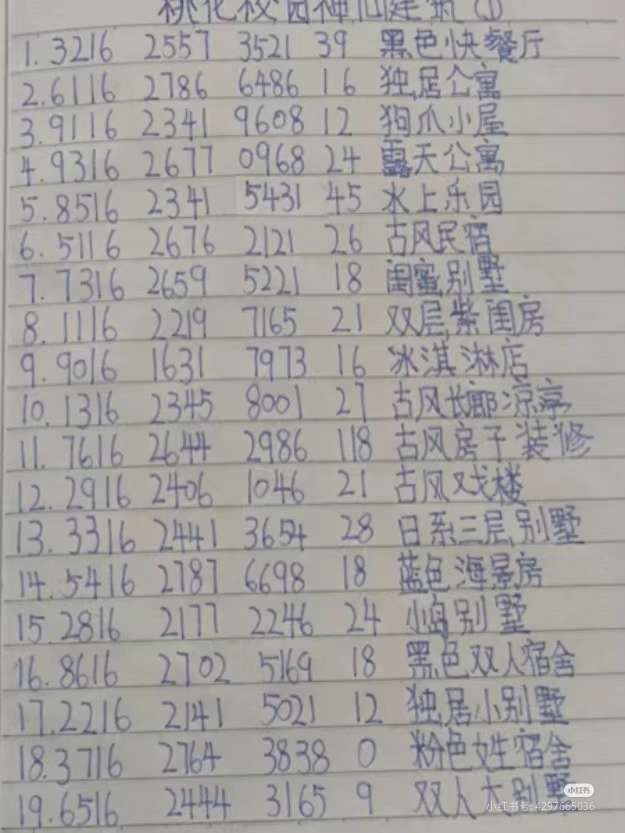 桃花校园神仙建筑(1)
1.3216 2557 3521 39 黑色快餐厅
2.6116 2786 6486 16 独居公寓
3.9116 2341 9608 12 狗爪小屋
4.9316 2677 0968 24 露天公寓
5.8516 2341 5431 45 水上乐园
6.5116 2676 2121 26 古风民宿
7.7316 2659 5221 18 闺蜜别墅
8.1116 2219 7165 21 双层紫闺房
9.9016 1631 7973 16 冰淇淋店
10.1316 2345 8001 27 古风长廊凉亭
11.7616 2644 2986 118 古风房子装修
12.2916 2406 1046 21 古风戏楼
13.3316 2441 3654 28 日系三层别墅
14.5416 2787 6698 18 蓝色海景房
15.2816 2177 2246 24 小岛别墅
16.8616 2702 5169 18 黑色双人宿舍
17.2216 2141 5021 12 独居小别墅
18.3716 2764 3838 0 粉色女生宿舍
19.6516 2444 3165 9 双人大别墅
小红书
小红书号:4297665036